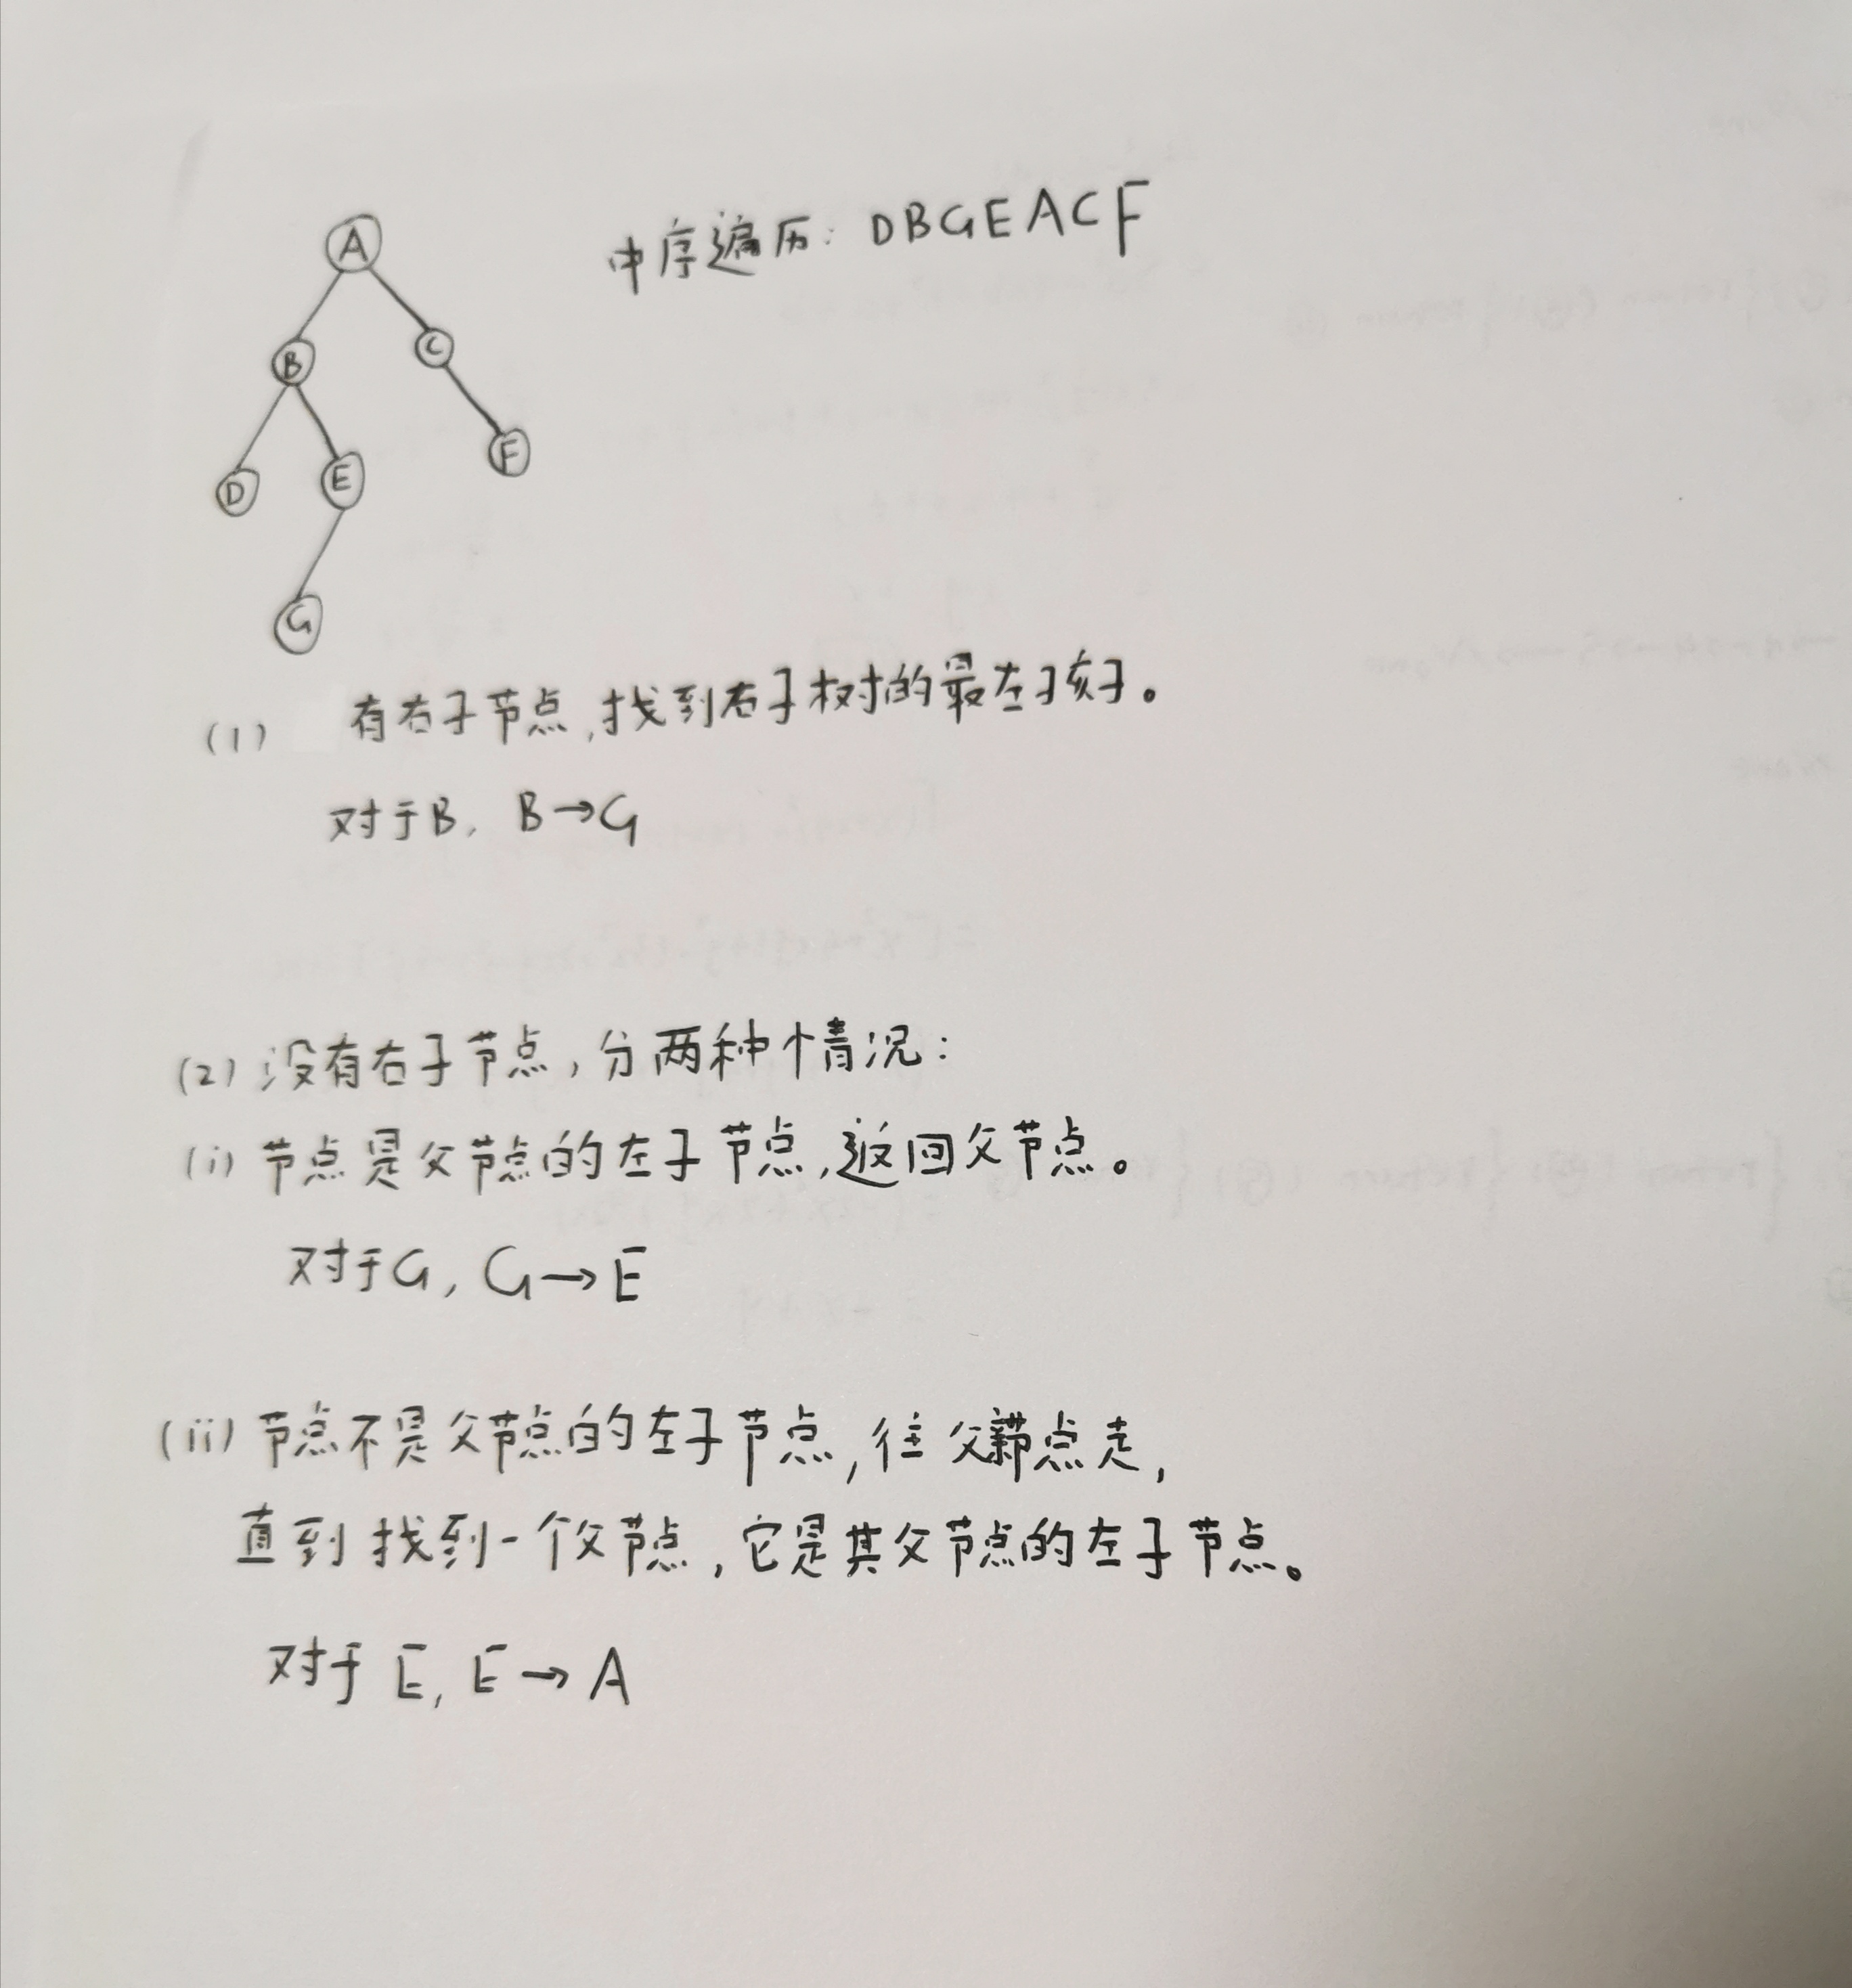 中序遍历: DBGEACF
A
B
C
D
E
F
G
(1) 有右子节点,找到右子树的最左孩子。
对于B, B→G
(2) 没有右子节点,分两种情况:
(i) 节点是父节点的左子节点,返回父节点。
对于G, G→E
(ii) 节点不是父节点的左子节点,往父节点走,
直到找到一个父节点,它是其父节点的左子节点。
对于 E, E→A